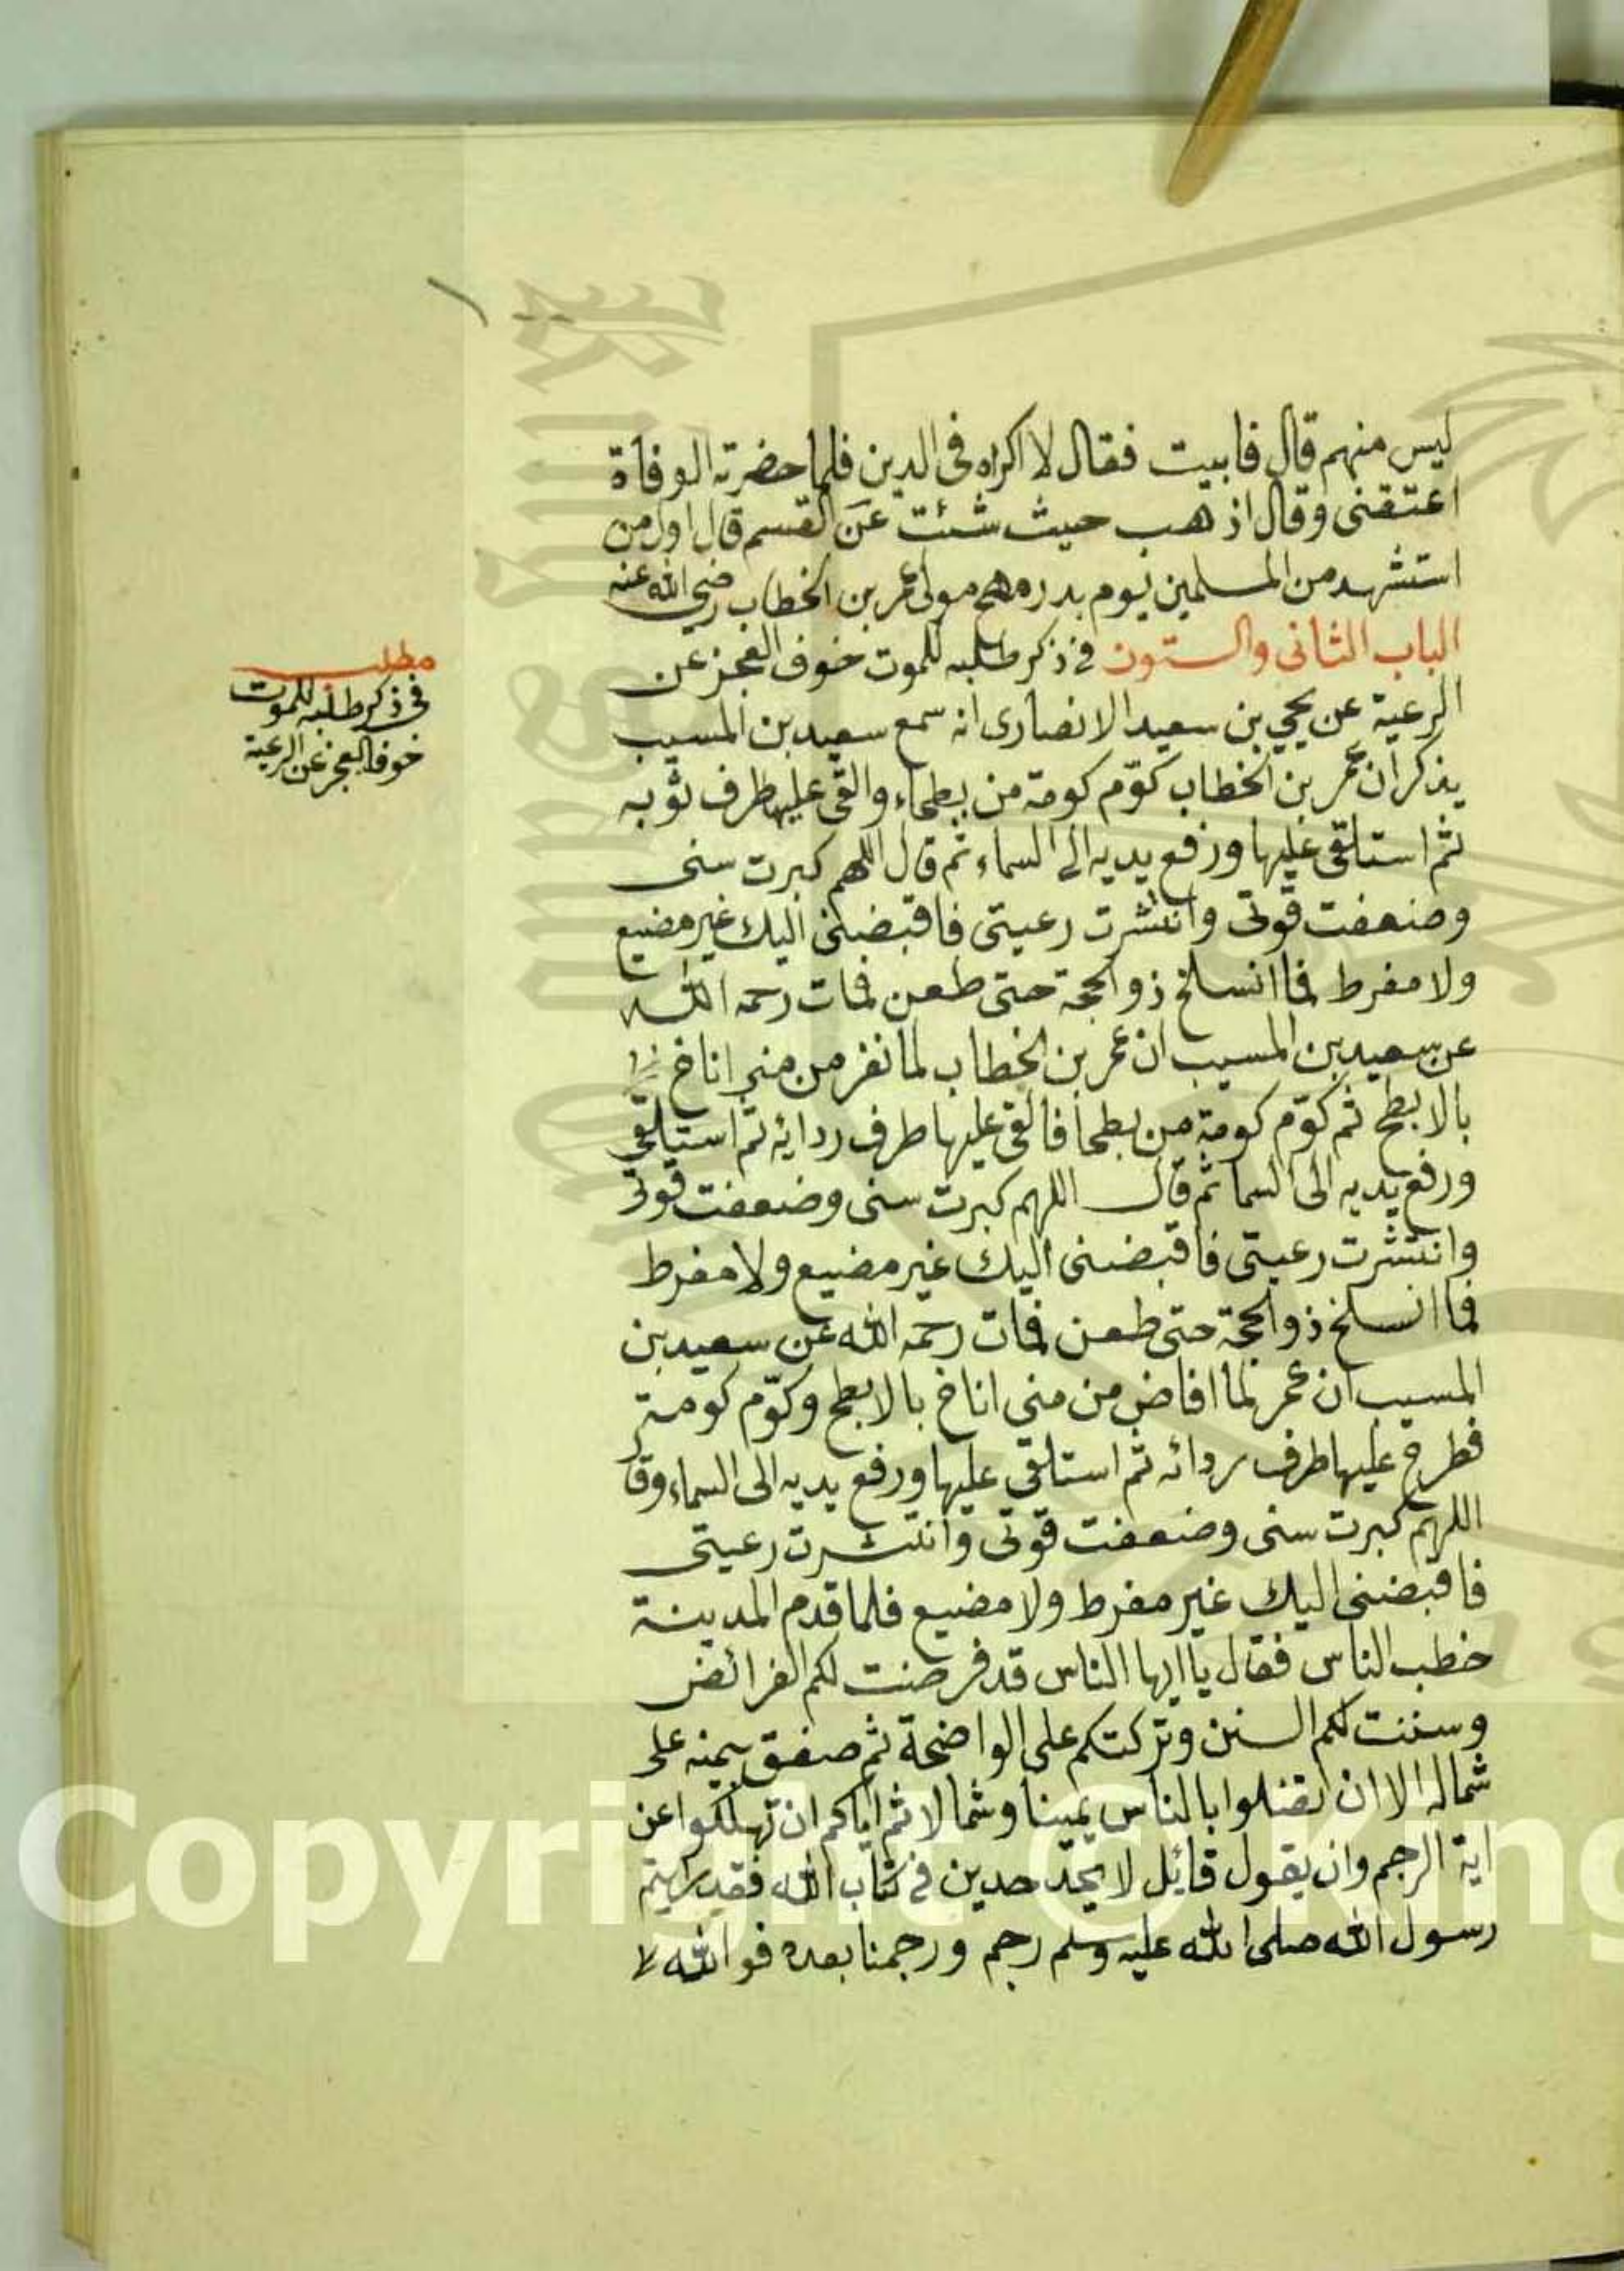 ليس منهم قال فابيت فقال لا اكراه فى الدين فلما حضرته الوفاة
اعتقنى وقال اذهب حيث شئت عن القسم قال اول من
استشهد من المسلمين يوم بدر مهجع مولى عمر بن الخطاب رضى الله عنه
الباب الثانى والستون فى ذكر طلبه للموت خوف العجز عن
الرعية عن يحيى بن سعيد الانصارى انه سمع سعيد بن المسيب
يذكر ان عمر بن الخطاب كوّم كومة من بطحاء والقى عليها طرف ثوبه
ثم استلقى عليها ورفع يديه الى السماء ثم قال اللهم كبرت سنى
وضعفت قوتى وانتشرت رعيتى فاقبضنى اليك غير مضيع
ولا مفرط فما انسلخ ذو الحجة حتى طعن فمات رحمه الله
عن سعيد بن المسيب ان عمر بن الخطاب لما نفر من منى اناخ
بالابطح ثم كوّم كومة من بطحا فالقى عليها طرف ردائه ثم استلقى
ورفع يديه الى السما ثم قال اللهم كبرت سنى وضعفت قوتى
وانتشرت رعيتى فاقبضنى اليك غير مضيع ولا مفرط
فما انسلخ ذو الحجة حتى طعن فمات رحمه الله عن سعيد بن
المسيب ان عمر لما افاض من منى اناخ بالابطح وكوّم كومة
فطرح عليها طرف ردائه ثم استلقى عليها ورفع يديه الى السماء وقال
اللهم كبرت سنى وضعفت قوتى وانتشرت رعيتى
فاقبضنى اليك غير مفرط ولا مضيع فلما قدم المدينة
خطب الناس فقال يا ايها الناس قد فرضت لكم الفرائض
وسننت لكم السنن وتركتكم على الواضحة ثم صفق يمينه على
شماله الا ان تضلوا بالناس يمينا وشمالا ثم اياكم ان تهلكوا عن
اية الرجم وان يقول قائل لا نحد حدين فى كتاب الله فقد رايتم
رسول الله صلى الله عليه وسلم رجم ورجمنا بعده فوالله لا
مطلب
فى ذكر طلبه للموت
خوف العجز عن الرعية
Copyright © King